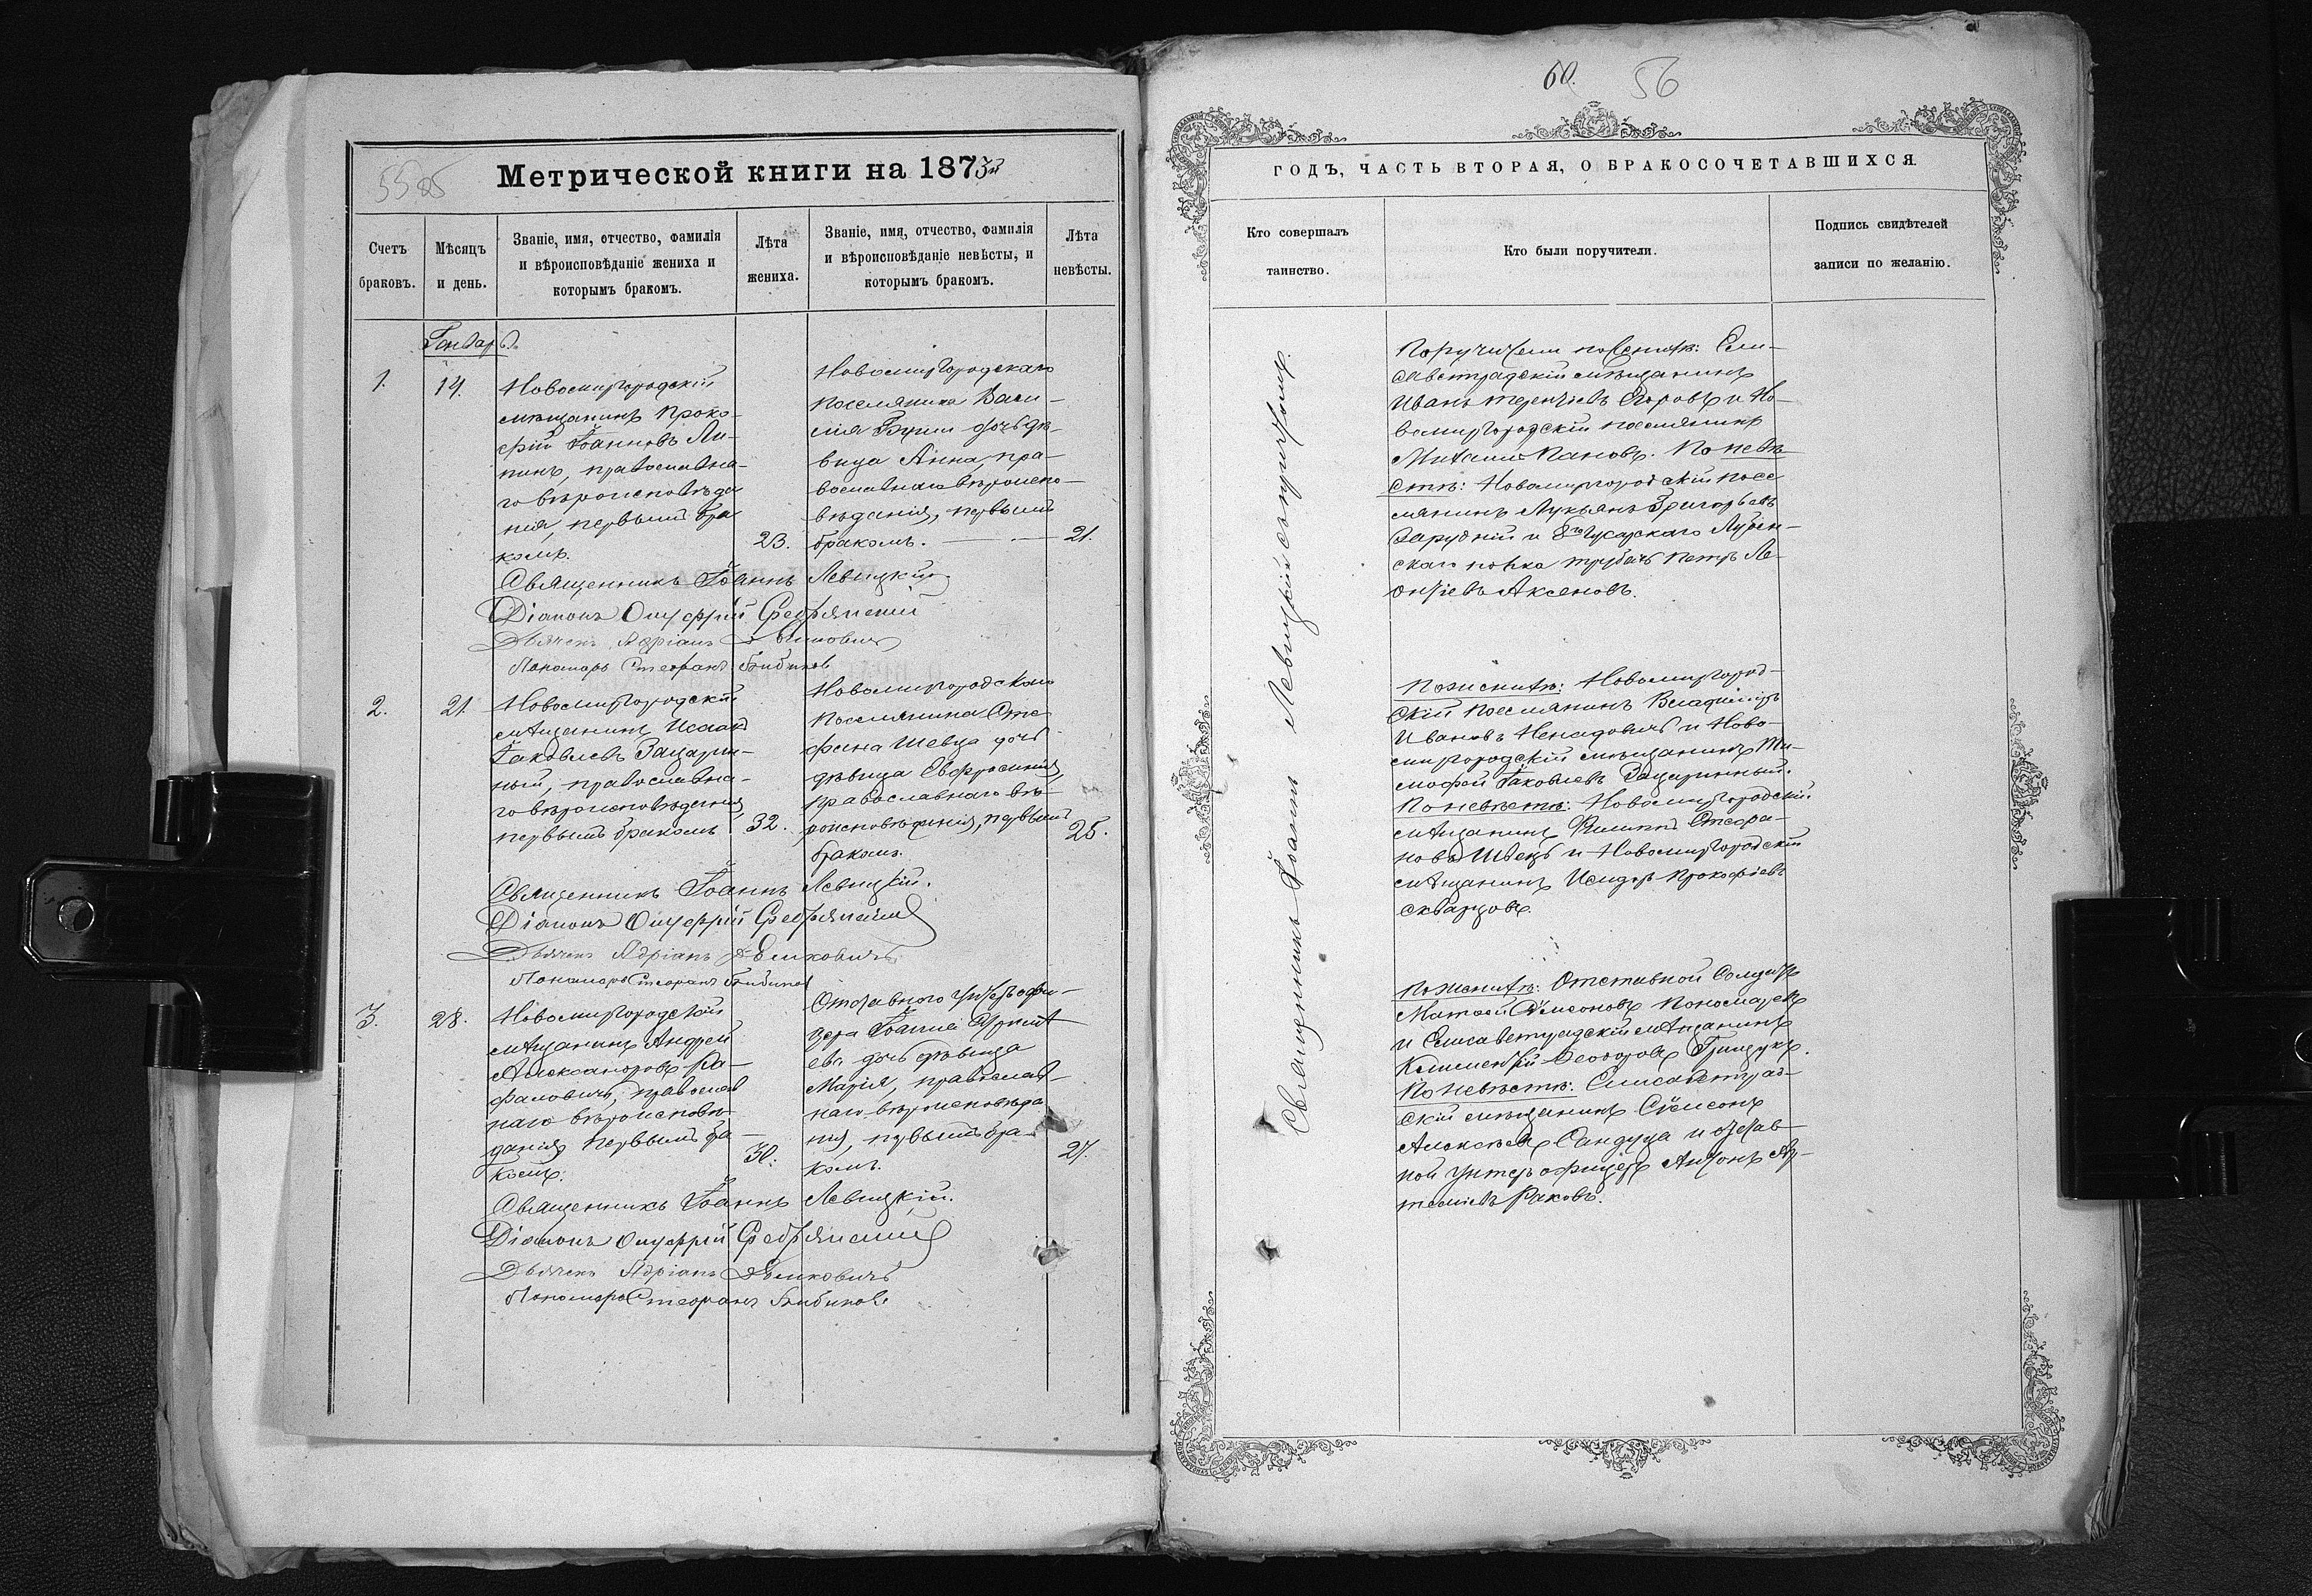 55 об
Метрической книги на 1873й
Счетъ браковъ.
Мѣсяцъ и день.
Званіе, имя, отчество, фамилія
и вѣроисповѣданіе жениха и
которымъ бракомъ.
Лѣта жениха.
Званіе, имя, отчество, фамилія
и вѣроисповѣданіе невѣсты, и
которымъ бракомъ.
Лѣта невѣсты.
Генварь
1.
14.
Новомиргородскій
мѣщанинъ Проко-
фій Іоанновъ
православна-
го вѣроисповѣда
нія, первымъ бра
комъ.
23.
Новомиргородскаго
поселянина Васи-
лія дочь дѣ-
вица Анна, пра-
вославнаго вѣроиспо-
вѣданія, первымъ
бракомъ.
21.
Священникъ Іоаннъ Левицкій
Діаконъ Онуфрій
Дьячекъ Адріанъ
Пономарь Стефанъ Бибиковъ
2.
21.
Новомиргородскій
мѣщанинъ Исаакъ
Іаковлевъ Зацарин-
ный, православна-
го вѣроисповѣданія,
первымъ бракомъ
32.
Новомиргородскаго
поселянина Сте-
фана Шевца дочь
дѣвица Евфросинія,
православнаго вѣ-
роисповѣданія, первымъ
бракомъ.
25.
Священникъ Іоаннъ Левицкій.
Діаконъ Онуфрій
Дьячекъ Адріанъ
Пономарь Стефанъ Бибиковъ
3.
28.
Новомиргородскій
мѣщанинъ Андрей
Александровъ Ра-
фаловичъ, православ
наго вѣроисповѣ-
данія первымъ бра-
комъ.
30.
Отставного унтеръ офи-
цера Іоанна
дочь дѣвица
Марія, православ-
наго вѣроисповѣда
нія, первымъ бра-
комъ.
27.
Священникъ Іоаннъ Левицкій.
Діаконъ Онуфрій
Дьячекъ Адріанъ
Пономарь Стефанъ Бибиковъ
60. 56
ГОДЪ, ЧАСТЬ ВТОРАЯ, О БРАКОСОЧЕТАВШИХСЯ
Кто совершалъ
таинство.
Кто были поручители.
Подпись свидѣтелей
записи по желанію.
Священникъ Іоаннъ Левицкій
Поручители по женихѣ: Ели-
саветградскій мѣщанинъ
Иванъ Терентіевъ Егоровъ и Но-
вомиргородскій поселянинъ
Пановъ. По невѣ
стѣ: Новомиргородскій посе
лянинъ Лукьянъ Григорьевъ
Зарудній и Гусарскаго Лубен-
скаго полка трубачъ Петръ Ле-
онтіевъ Аксеновъ.
По женихѣ: Новомиргород-
скій поселянинъ Владиміръ
Ивановъ Ненадовичъ и Ново-
миргородскій мѣщанинъ Ти-
мофей Іаковлевъ Зацаринный.
По невѣстѣ: Новомиргородскій
мѣщанинъ Филиппъ Стефа-
новъ Швецъ и Новомиргородскій
мѣщанинъ Исидоръ Прокофіевъ
Скварцовъ.
По женихѣ: Отставной Солдатъ
Матвей Сѵмеоновъ Пономаревъ
и Елисаветградскій мѣщанинъ
Климентій Ѳеодоровъ Грищукъ.
По невѣстѣ: Елисаветград-
скій мѣщанинъ Сѵмеонъ
Алексѣевъ Сандуца и отстав
ной унтеръ офицеръ Антонъ Ар-
темiевъ Раковъ.